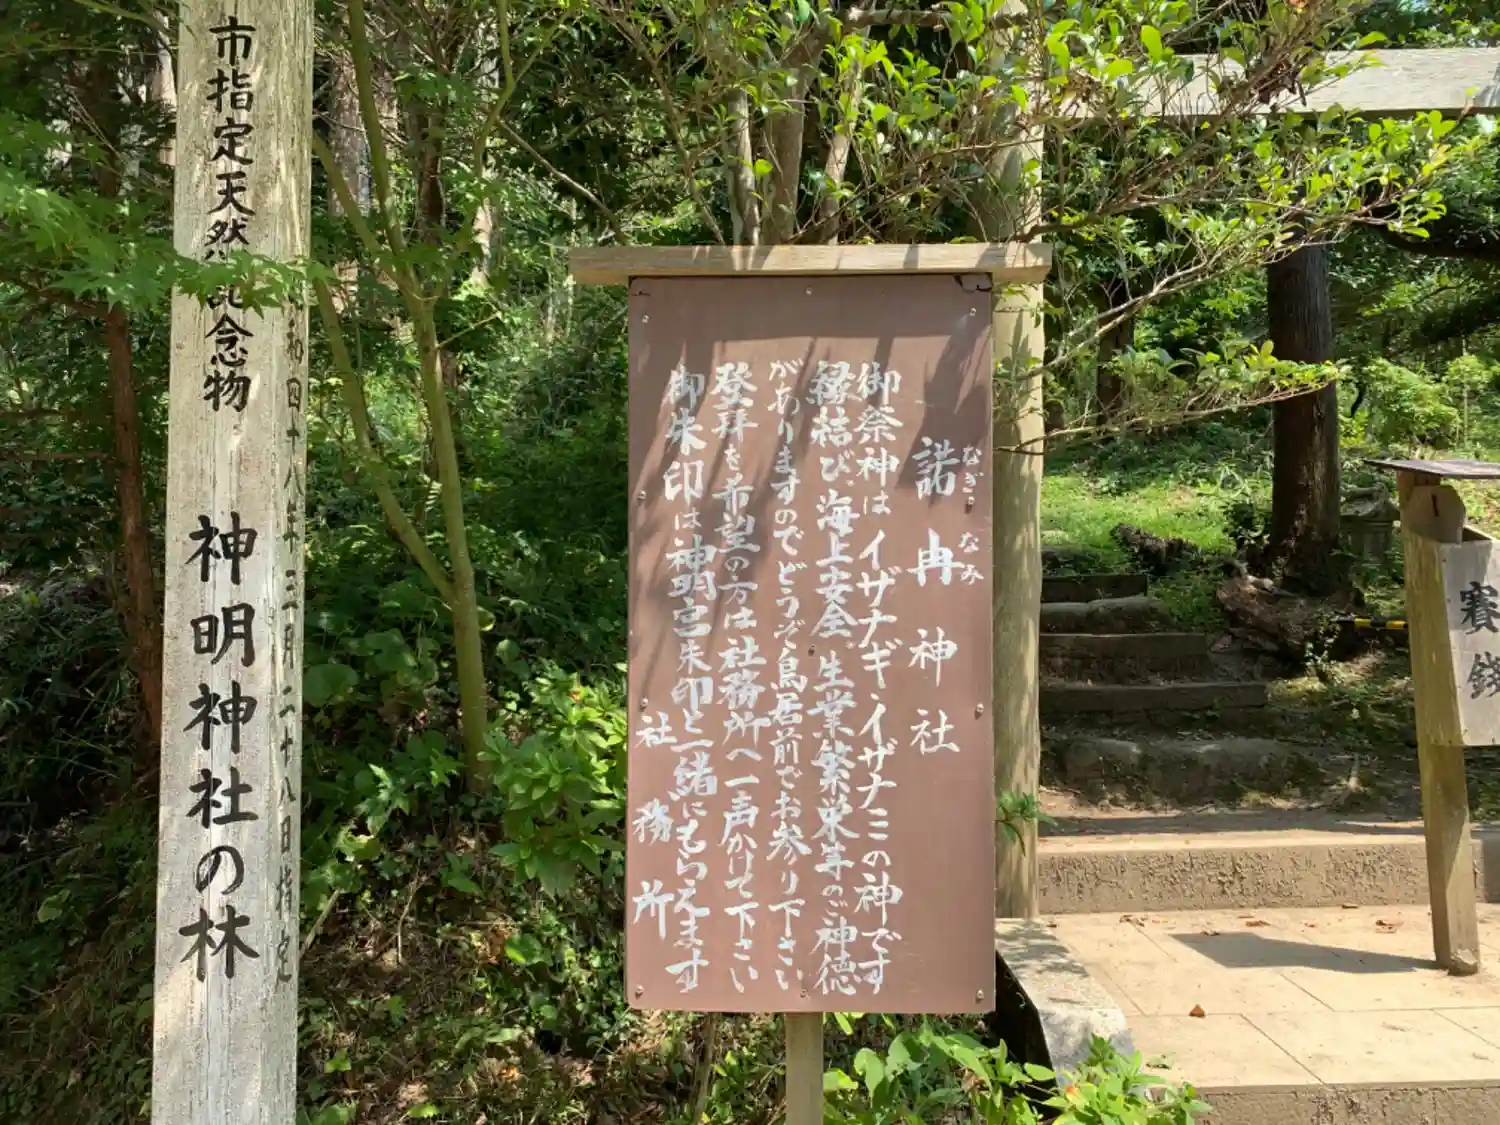 市指定天然記念物
神明神社の林
和四十八年三月二十八日指定
諾冉神社
なぎ
なみ
御祭神はイザナギ・イザナミの神です
縁結び、海上安全、生業繁栄等のご神徳
がありますのでどうぞ鳥居前でお参り下さい
登拝を希望の方は社務所へ一声かけて下さい
御朱印は神明宮朱印と一緒にもらえます
社務所
賽銭